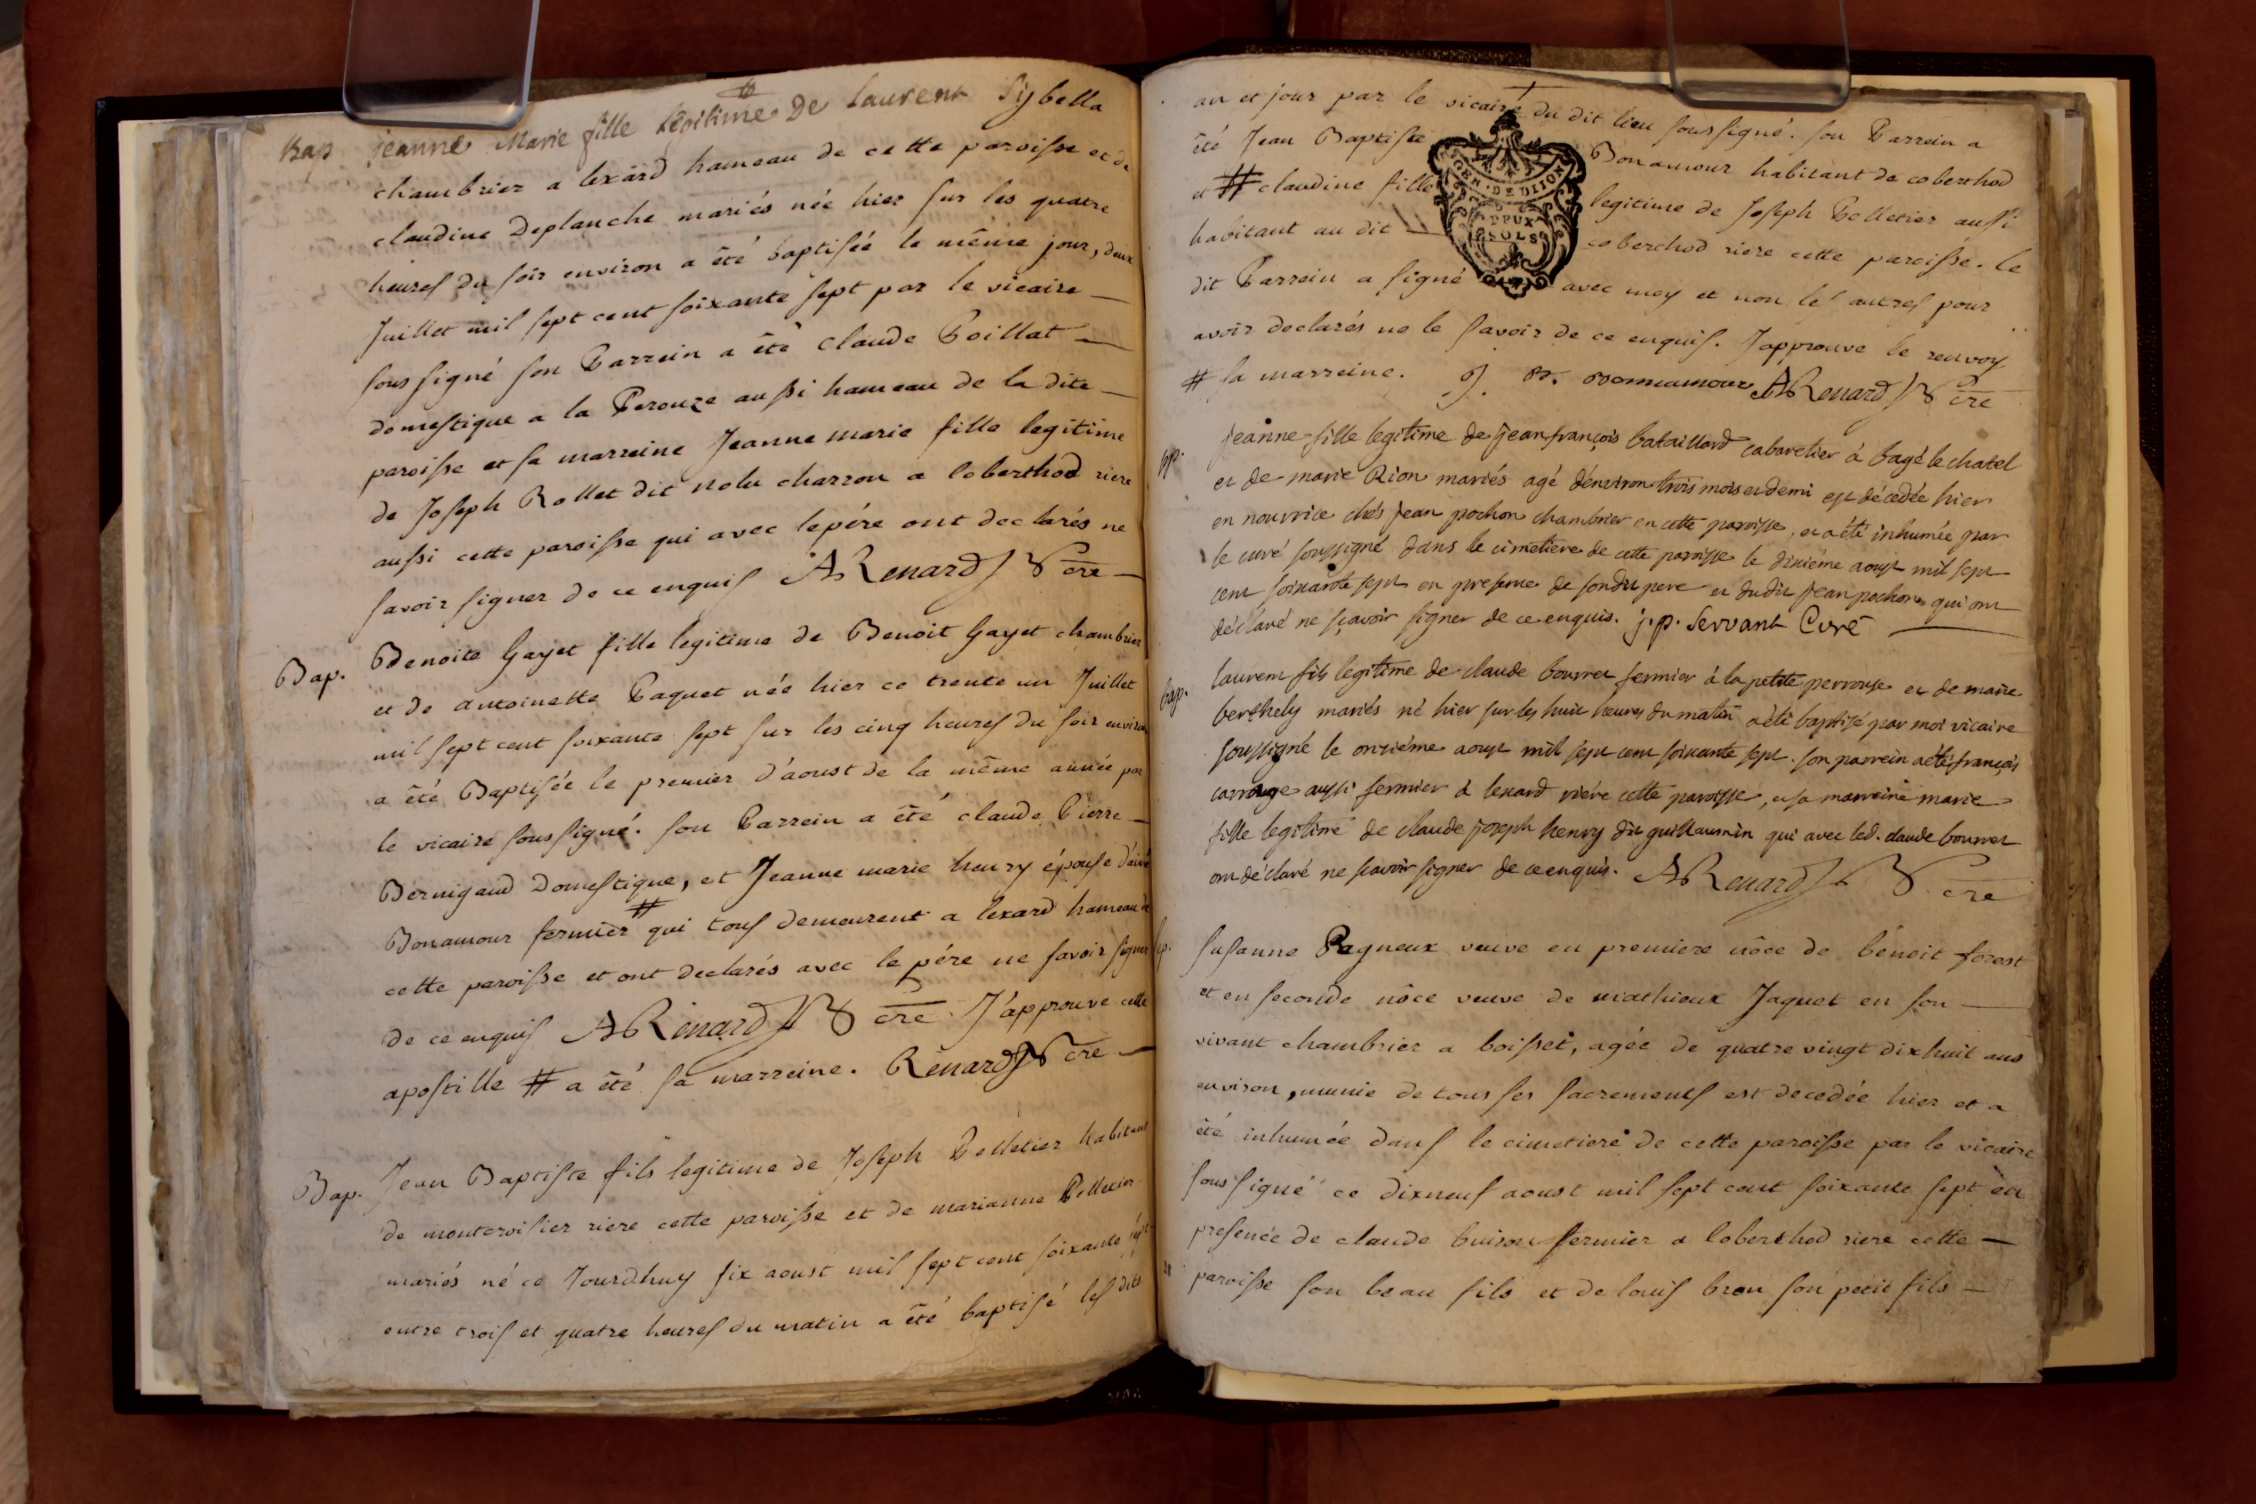 Bap jeanne Marie fille légitime De laurent Sybella
chambrier a lexard hameau de cette paroisse et de
claudine Deplanche mariés née hier sur les quatre
heures du soir environ a été baptisée le même jour, deux
Juillet mil sept cent soixante sept par le vicaire
sous signé son Parrein a été claude Poillat
domestique a la Perouze aussi hameau de la dite
paroisse et sa marreine Jeanne marie fille legitime
de Joseph Rollet dit nolu charron a loberthod riere
aussi cette paroisse qui avec le pére ont declarés ne
savoir signer de ce enquis ARenard V cre
Bap. Benoite Gayet fille legitime de Benoit Gayet chambrier
et de antoinette Paquet née hier ce trente un Juillet
mil sept cent soixante sept sur les cinq heures du soir environ
a été Baptisée le premier d'aoust de la même année par
le vicaire soussigné. son Parrein a été claude Pierre
Bernigaud Domestique, et Jeanne marie henry épouse
Bonamour fermier # qui tous demeurent a lexard hameau de
cette paroisse et ont declarés avec le pére ne savoir signer
de ce enquis ARenard V cre J'approuve cette
apostille # a été sa marreine. Renard V cre
Bap. Jean Baptiste fils legitime de Joseph Pelletier habitant
de montcroisier riere cette paroisse et de marianne Pelletier
mariés né ce Jourdhuy six aoust mil sept cent soixante sept
entre trois et quatre heures du matin a été baptisé les dits
an et jour par le vicaire du dit lieu soussigné. son Parrein a
été Jean Baptiste Bonamour habitant de coberthod
et # claudine fille legitime de Joseph Pelletier aussi
habitant au dit coberthod riere cette paroisse. le
GEN. DE DIJON
DEUX
SOLS
dit Parrein a signé avec moy et non les autres pour
avoir declarés ne le savoir de ce enquis. J'approuve le renvoy
# sa marreine. J. B. Bonnamour ARenard V cre
jeanne fille legitime de jean françois bataillard cabaretier à bagé le chatel
et de marie Rion mariés agé d'environ trois mois et demi est décedée hier
en nourrice chés jean pochon chambrier en cette paroisse, et a été inhumée par
le curé soussigné dans le cimetiere de cette paroisse le dixiéme aoust mil sept
cent soixante sept en presence de sondit pere et dudit jean pochon qui ont
déclaré ne sçavoir signer de ce enquis. j. p. Servant Curé
bap. laurent fils legitime de claude bourret fermier à la petite perrouse et de marie
berthely mariés né hier sur les huit heures du matin a été baptisé par moi vicaire
soussigné le onziéme aoust mil sept cent soixante sept. son parrein a été françois
carruge aussi fermier à lexard riére cette paroisse, et sa marreine marie
fille legitime de claude joseph henry dit guillaumin qui avec led. claude bourret
ont déclaré ne sçavoir signer de ce enquis. ARenard V cre
Susanne Pagneux veuve en premiere nôce de bénoit forest
et en seconde nôce veuve de mathieux Jaquet en son
vivant chambrier a boisset, agée de quatre vingt dixhuit ans
environ, munie de tous ses sacrements est decedée hier et a
été inhumée dans le cimetiere de cette paroisse par le vicaire
sous signé ce dixneuf aoust mil sept cent soixante sept en
presence de claude buiron fermier a loberthod riere cette
paroisse son beau fils et de louis brou son petit fils